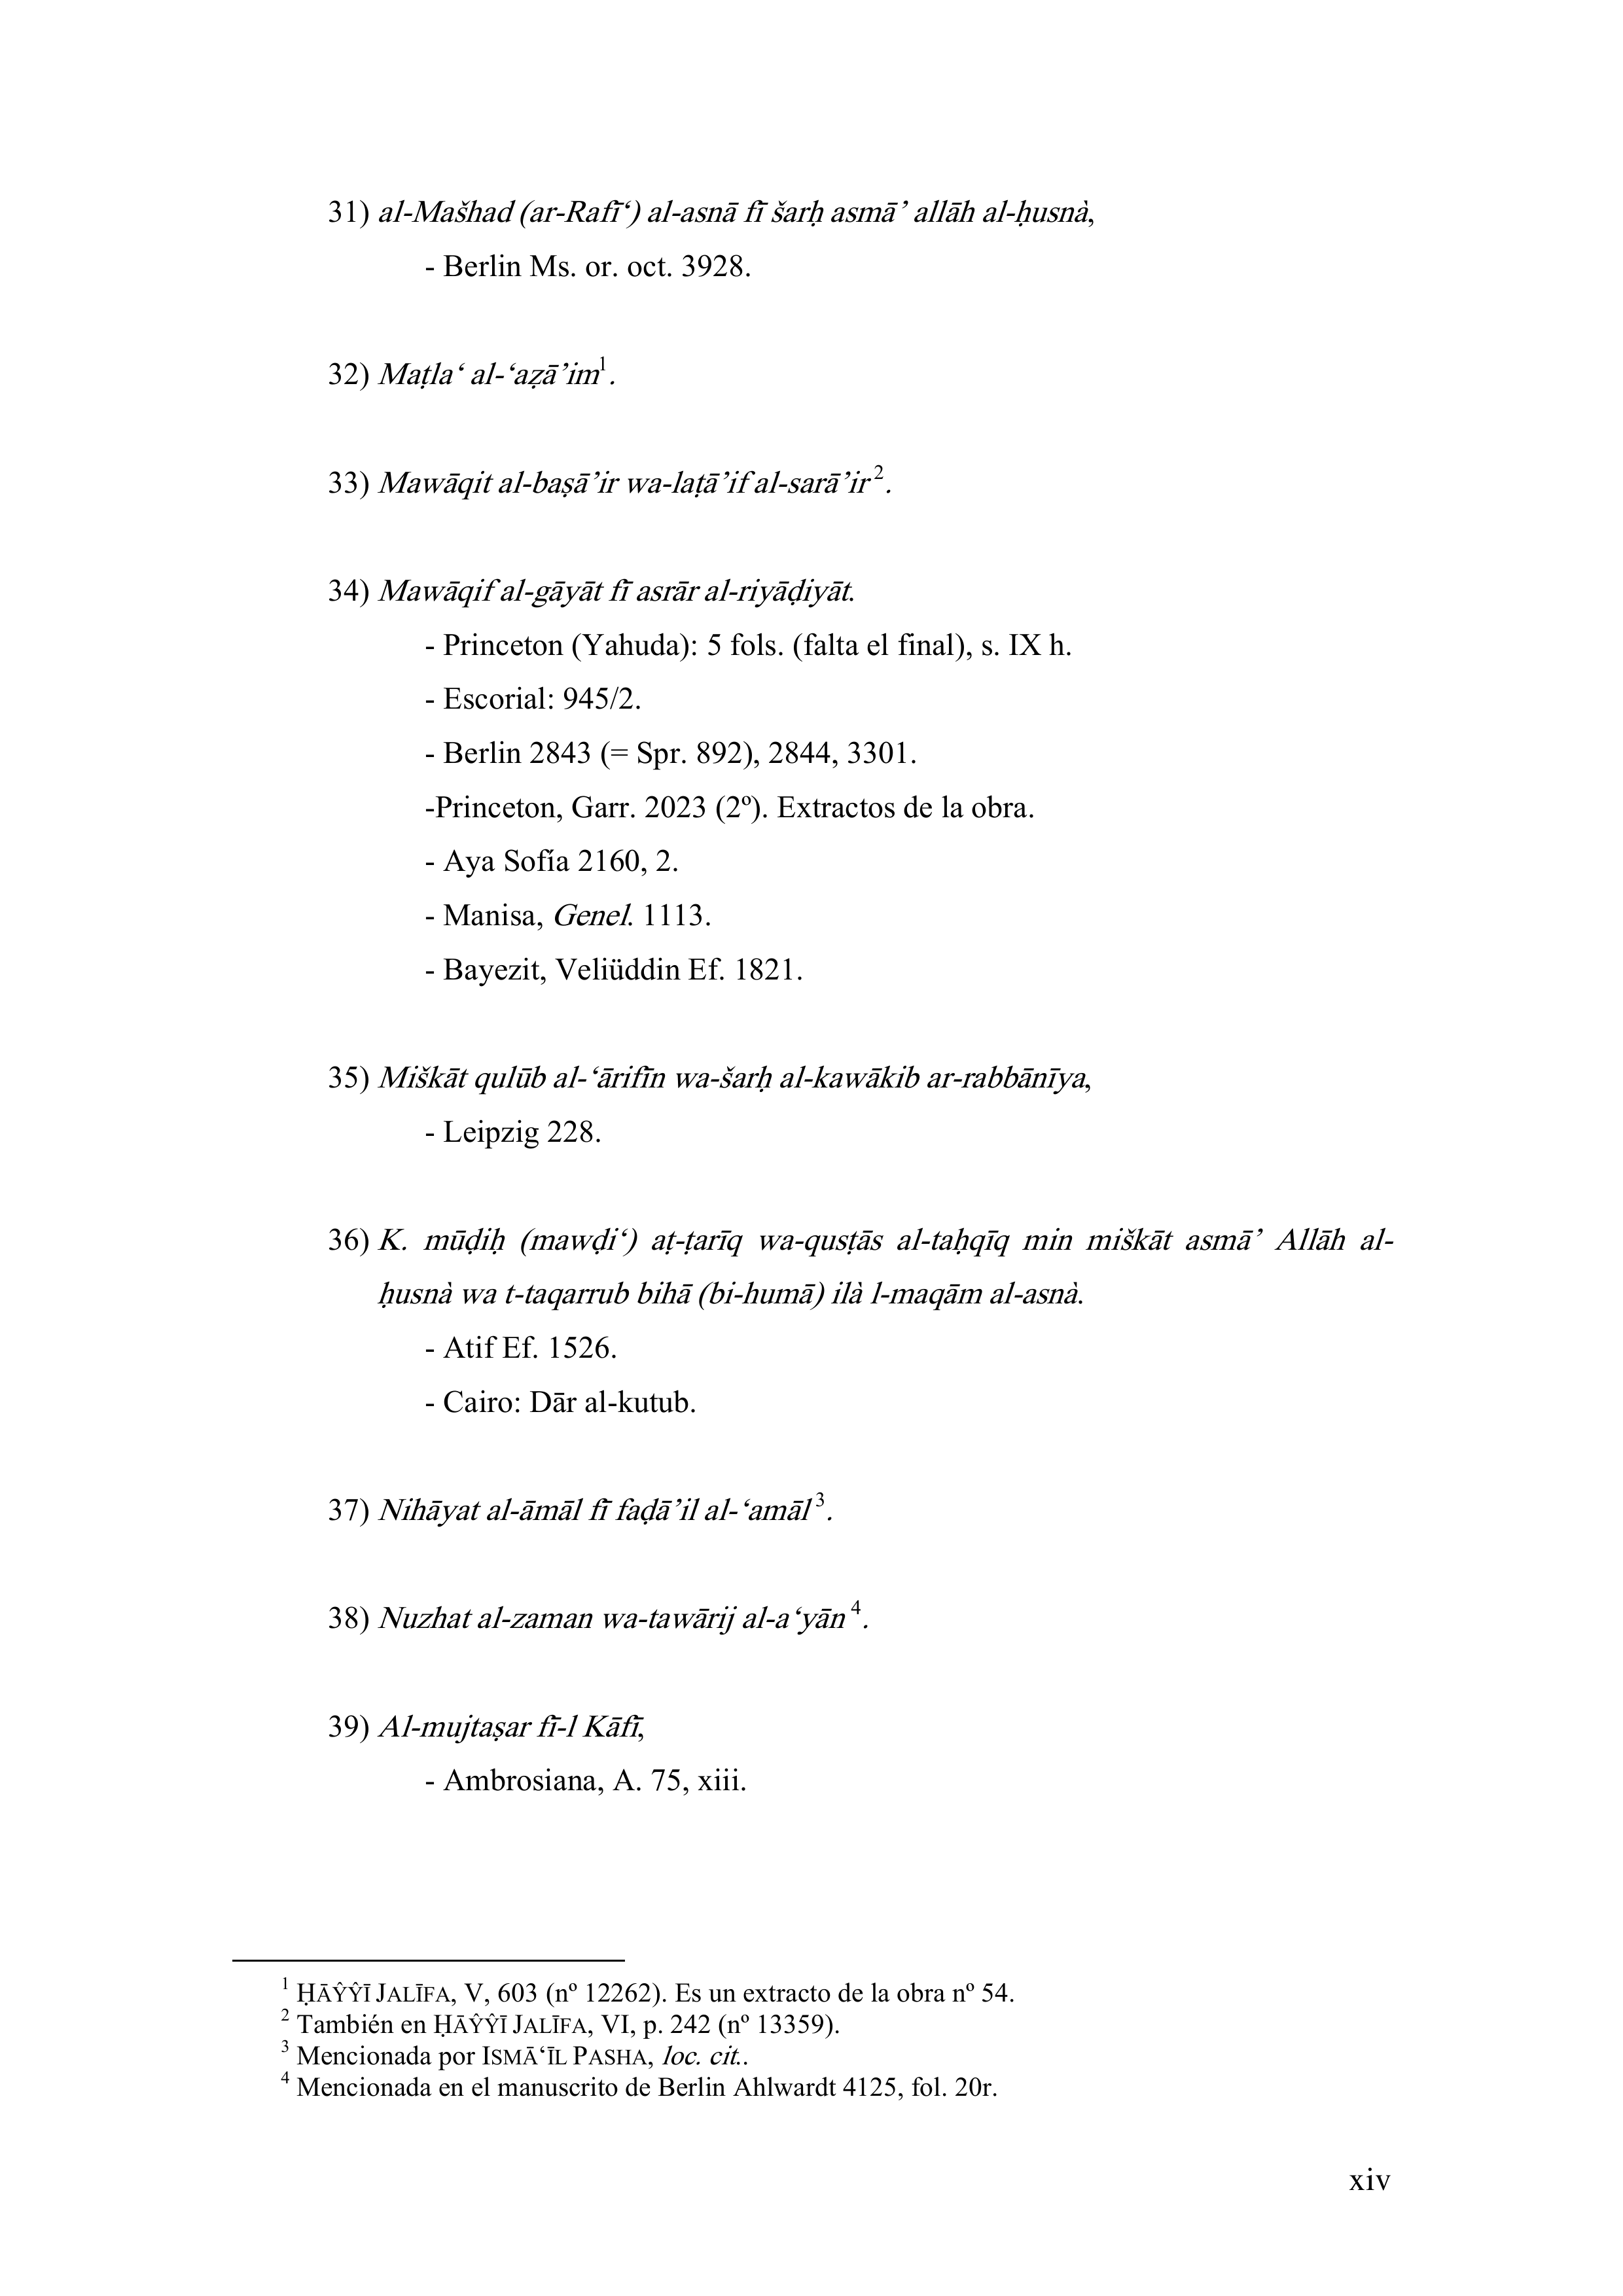 31) al-Mašhad (ar-Rafī‘) al-asnā fī šarḥ asmā’ allāh al-ḥusnà,
- Berlin Ms. or. oct. 3928.
32) Maṭla‘ al-‘aẓā’im¹.
33) Mawāqit al-baṣā’ir wa-laṭā’if al-sarā’ir².
34) Mawāqif al-gāyāt fī asrār al-riyāḍiyāt.
- Princeton (Yahuda): 5 fols. (falta el final), s. IX h.
- Escorial: 945/2.
- Berlin 2843 (= Spr. 892), 2844, 3301.
-Princeton, Garr. 2023 (2º). Extractos de la obra.
- Aya Sofía 2160, 2.
- Manisa, Genel. 1113.
- Bayezit, Veliüddin Ef. 1821.
35) Miškāt qulūb al-‘ārifīn wa-šarḥ al-kawākib ar-rabbānīya,
- Leipzig 228.
36) K. mūḍiḥ (mawḍi‘) aṭ-ṭarīq wa-qusṭās al-taḥqīq min miškāt asmā’ Allāh al-
ḥusnà wa t-taqarrub bihā (bi-humā) ilà l-maqām al-asnà.
- Atif Ef. 1526.
- Cairo: Dār al-kutub.
37) Nihāyat al-āmāl fī faḍā’il al-‘amāl³.
38) Nuzhat al-zaman wa-tawārij al-a‘yān⁴.
39) Al-mujtaṣar fī-l Kāfī,
- Ambrosiana, A. 75, xiii.
¹ ḤĀŶŶĪ JALĪFA, V, 603 (nº 12262). Es un extracto de la obra nº 54.
² También en ḤĀŶŶĪ JALĪFA, VI, p. 242 (nº 13359).
³ Mencionada por ISMĀ‘ĪL PASHA, loc. cit..
⁴ Mencionada en el manuscrito de Berlin Ahlwardt 4125, fol. 20r.
xiv